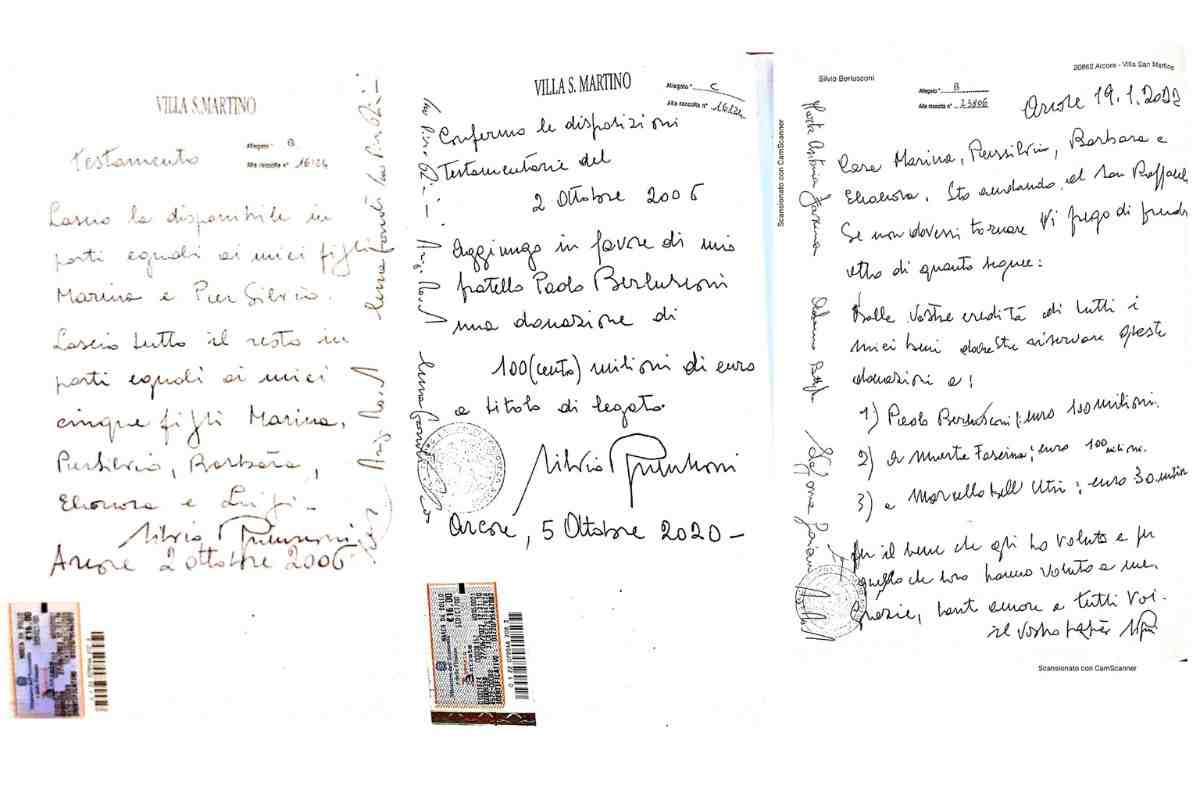 VILLA S.MARTINO
Allegato " B
Alla raccolta n° 16124
Testamento
Lascio la disponibile in
parti eguali ai miei figli
Marina e Pier Silvio.
Lascio tutto il resto in
parti eguali ai miei
cinque figli Marina,
Piersilvio, Barbara,
Eleonora e Luigi.
Silvio Berlusconi
Arcore 2 ottobre 2006
VILLA S. MARTINO
Allegato " C
Alla raccolta n° 16124
Confermo le disposizioni
Testamentarie del
2 Ottobre 2006
Aggiungo in favore di mio
fratello Paolo Berlusconi
una donazione di
100 (cento) milioni di euro
a titolo di legato.
Silvio Berlusconi
Arcore, 5 Ottobre 2020 -
MARCA DA BOLLO
€16,00
Scansionato con CamScanner
Silvio Berlusconi
20862 Arcore - Villa San Martino
Allegato " B
Alla raccolta n° 23806
Arcore 19.1.2022
Cara Marina, Piersilvio, Barbara e
Eleonora, Sto andando al San Raffaele
Se non dovessi tornare Vi prego di prende
atto di quanto segue:
Dalle vostre eredità di tutti i
miei beni dovreste riservare queste
donazioni a:
1) Paolo Berlusconi; euro 100 milioni.
2) a Marta Fascina; euro 100 milioni.
3) a Marcello Dell'Utri; euro 30 milioni
Per il bene che gli ho voluto e per
quello che loro hanno voluto a me.
Grazie, tanto amore a tutti voi.
il vostro papà
Scansionato con CamScanner